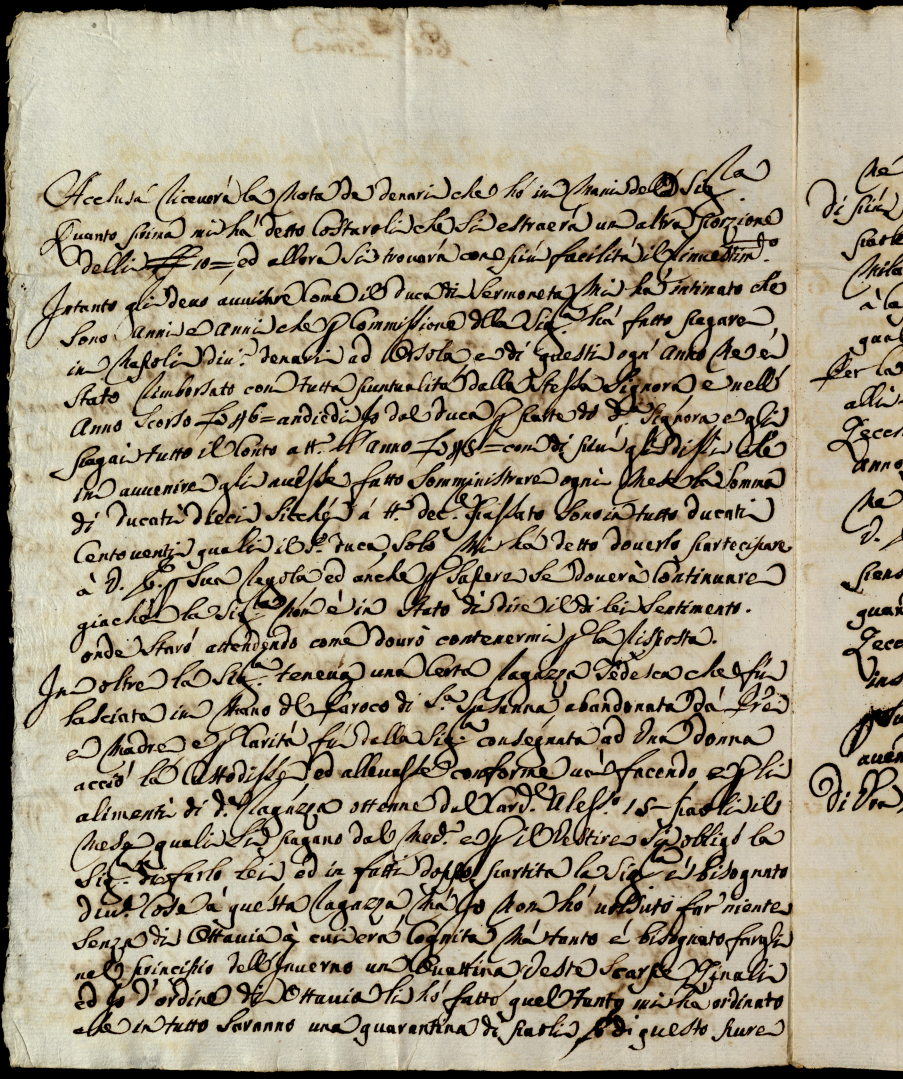 Acclusa riceverà la Nota de denari che hò in Mani della Sig.ra
Quanto prima mi há detto Costaroli che si estraerá un altra porzione
delli 10= ed allora si troverá con più facilità il rimedim.to
Intanto gli devo avvisare come il Duca di Sermoneta Mi há intimato che
sono anni e anni che p Commissione della Sig.ra há fatto pagare
in Napoli div.i denari ad Orsola e di questi ogn' Anno Ne é
stato rimborsato con tutta puntualità dalla stessa Signora e nell'
Anno scorso andiedi Io dal Duca p parte di d.a Signora e gli
pagai tutto il Conto a tt.o l'anno con di più gli dissi che
in avvenire gli avesse fatto somministrare ogni Mese la somma
di ducati dieci sicché á tt.o dec.e Passato sono in tutto ducati
Centoventi quali il S.r Duca solo Mi há detto doverlo partecipare
à V. S. p sua regola ed anche p sapere se doverà Continuare
giaché la Sig.ra Non é in stato di dire il di lei sentimento.
onde staró attendendo come dovrò contenermi p la risposta.
In oltre la Sig.ra teneva una Certa ragazza Tedesca che fú
lasciata in Mano del Paroco di S.a Susanna abandonata dá Pre
e Madre e p Carità fú dalla Sig.ra consegnata ad Una donna
acció la Custodisse ed allevasse conforme vá facendo e p li
alimenti di d.a ragazza ottenne dal Card.l Aless.o 15 paoli il
Mese quali si pagano dal Med.o e p il Vestire si obligó la
Sig.ra di farlo Lei ed in fatti doppo partita la Sig.ra é bisognato
div.e Cose á questa ragazza Má Io Non hó voluto far niente
senza di Ottavia à cui era Cognita Má tanto é bisognato fargli
nel principio dell'Inverno un Veste Scarpe
ed Io d'ordine di Ottavia li hó fatto quel tanto mi há ordinato
che in tutto saranno una quarantina di paoli e di questo pure
Né
di più
à la
Per la
alli
Zecc
anno
Ne
V.
pens
guar
Zecc
ins
aven